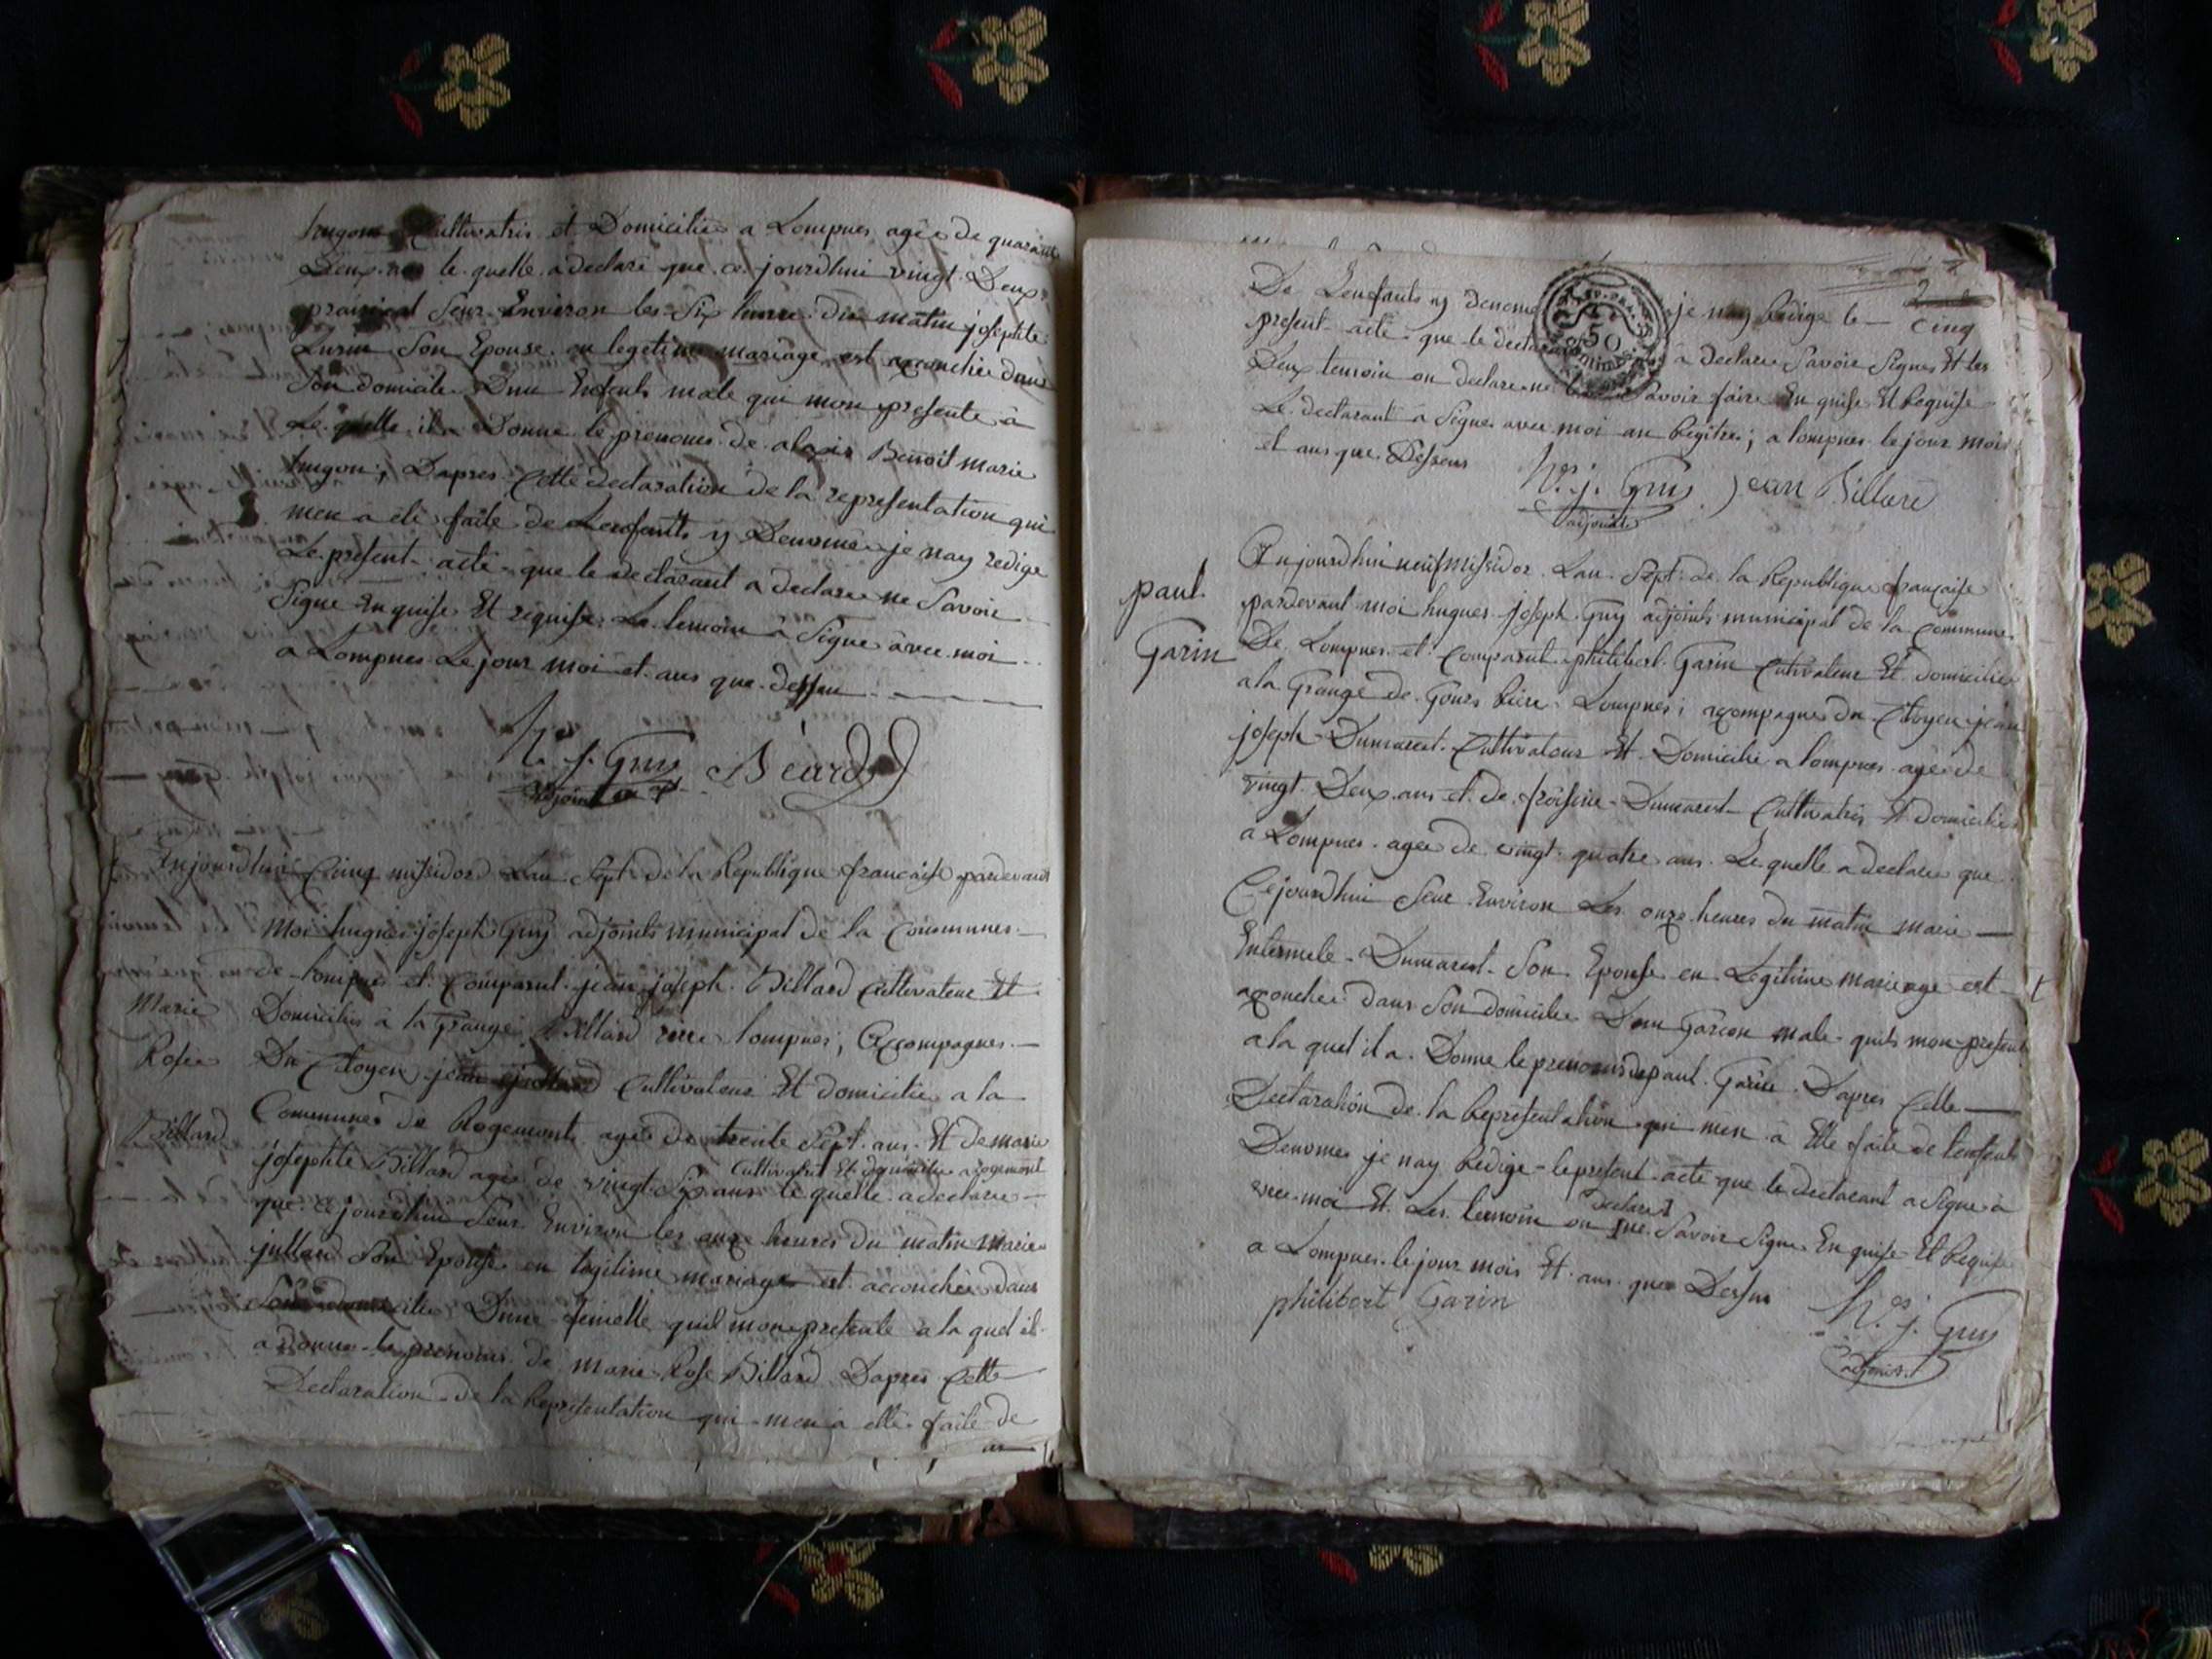 hugon Cultivatris et Domicilies a Lompnes agée de quarante
Deux le quelle a declaré que ce jourdhui vingt Deux
prairial Seur Environ les Six heure du matin josephte
Son Epouse en legetime mariage est acouchée dans
Son domicile Dun Enfents male qui mon presente à
Le quelle il a Donne le prenoms de alexis Benoit marie
hugon; Dapres Cette declaration de la representation qui
men a eté faite de Lenfents y Denomé je nay redige
Le present acte que le declarant a declaré ne Savoir
Signe En quise Et requise Le temoin a Signe avec moi
a Lompnes Le jour moi et ans que dessu
h. j. Guy Béard
adjoint
Anjourdhui Cinq missidor Lan Sept de la Republique francaise pardevant
Moi hugues joseph Guy adjoints municipal de la Communes
de lompnes et Comparut jean joseph Billard Cultivateur Et
Marie
Rosee
Billard
Domicilies à la Grange Billard rière lompnes, Accompagnes
Du Citoyen jean Cultivateur Et domicilie a la
Communes de Rogemonts agé de trente Sept ans Et de marie
Cultivatris Et domicilie a rogemont
josephte Billard agée de vingt Six ans le quelle a declare
que ce jourdhui Seur Environ les onze heures du matin Marie
jullard Son Epouse en legitime mariage est accouchée dans
Son domicilie Dune femelle quil mon presente a la quel il
a donne le prenoms de marie Rose Billard Dapres Cette
Declaration de la Representation qui men a elle faite de
De Lenfants y denome je nay Redige le cinq
present acte que le declarant à declare Savoir Signes Et les
50
Deux temoin on declare ne Savoir faire En quise Et Requise
Le declarant a Signe avec moi au Regitre; a lompnes le jour mois
et ans que Dessus
h.es j. Guy Jean Billard
adjoint
paul
Garin
Anjourdhui neuf missidor Lan Sept de la Republique francaise
pardevant moi hugues joseph Guy adjoints municipal de la Commune
De Lompnes et Comparut philibert Garin Cutivateur Et domicilie
a la Grange de Gours Rière Lompnes; acompagne du Citoyen jean
joseph Dumarest Cultivateur Et Domicilie a lompnes agé de
vingt Deux ans et de Dumarest Cultivatris Et domicilies
a Lompnes agée de vingt quatre ans Le quelle a declare que
Cejourdhui Seur Environ Les onze heures du matin marie
Dumarest Son Epouse en Legitime mariage est
acouchée dans Son domicilie Dun Garcon male quils mon present
a la quel il a Donne le prenoms de paul Garin Dapres Cette
Declaration de la Representation qui men a Elle faite de lenfents
Denomes je nay Redige le present acte que le declarant a Signe à
vec moi Et Les temoin on ne Savoir Signe En quise Et Requise
declare
a Lompnes le jour mois Et ans que Dessus
philibert Garin
h.es j. Guy
adjoint